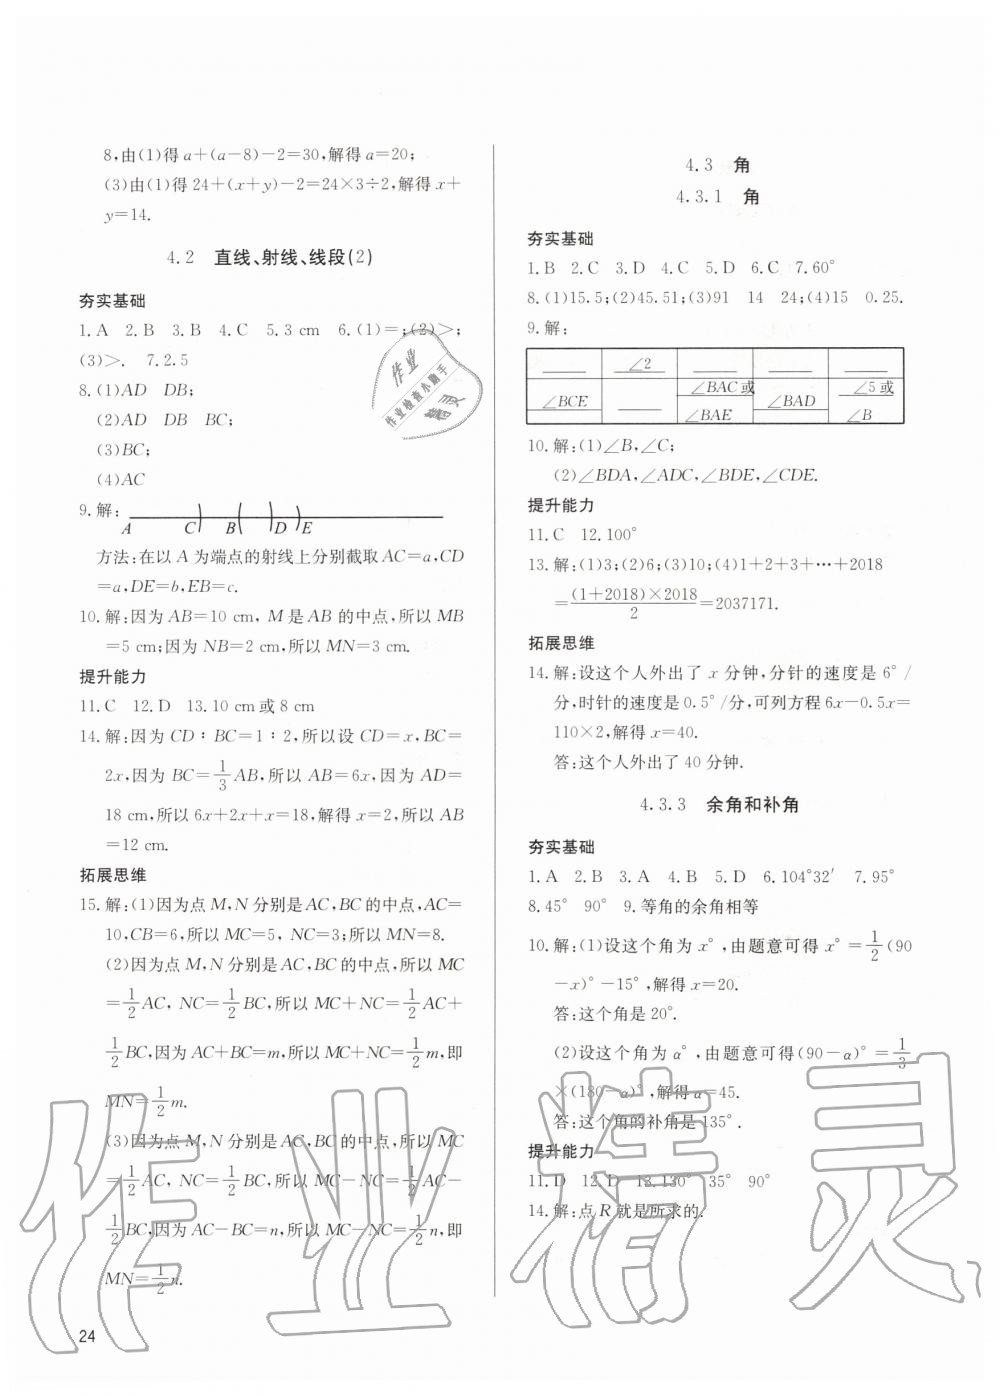 8,由(1)得 a+(a-8)-2=30,解得 a=20;
(3)由(1)得 24+(x+y)-2=24×3÷2,解得 x+
y=14.
4.2 直线、射线、线段(2)
夯实基础
1.A 2.B 3.B 4.C 5.3 cm 6.(1)=;(2)>;
(3)>. 7.2.5
8.(1)AD DB;
(2)AD DB BC;
(3)BC;
(4)AC
9.解:
A C B D E
方法:在以 A 为端点的射线上分别截取 AC=a,CD
=a,DE=b,EB=c.
10.解:因为 AB=10 cm, M 是 AB 的中点,所以 MB
=5 cm;因为 NB=2 cm,所以 MN=3 cm.
提升能力
11.C 12.D 13.10 cm 或 8 cm
14.解:因为 CD∶BC=1∶2,所以设 CD=x,BC=
2x,因为 BC=1/3AB,所以 AB=6x,因为 AD=
18 cm,所以 6x+2x+x=18,解得 x=2,所以 AB
=12 cm.
拓展思维
15.解:(1)因为点 M,N 分别是 AC,BC 的中点,AC=
10,CB=6,所以 MC=5, NC=3;所以 MN=8.
(2)因为点 M,N 分别是 AC,BC 的中点,所以 MC
=1/2AC, NC=1/2BC,所以 MC+NC=1/2AC+
1/2BC,因为 AC+BC=m,所以 MC+NC=1/2m,即
MN=1/2m.
(3)因为点 M,N 分别是 AC,BC 的中点,所以 MC
=1/2AC, NC=1/2BC,所以 MC-NC=1/2AC-
1/2BC,因为 AC-BC=n,所以 MC-NC=1/2n,即
MN=1/2n.
24
4.3 角
4.3.1 角
夯实基础
1.B 2.C 3.D 4.C 5.D 6.C 7.60°
8.(1)15.5;(2)45.51;(3)91 14 24;(4)15 0.25.
9.解:
∠2
∠BCE ∠BAC 或 ∠BAE ∠BAD ∠5 或 ∠B
10.解:(1)∠B,∠C;
(2)∠BDA,∠ADC,∠BDE,∠CDE.
提升能力
11.C 12.100°
13.解:(1)3;(2)6;(3)10;(4)1+2+3+…+2018
=(1+2018)×2018/2=2037171.
拓展思维
14.解:设这个人外出了 x 分钟,分针的速度是 6°/
分,时针的速度是 0.5°/分,可列方程 6x-0.5x=
110×2,解得 x=40.
答:这个人外出了 40 分钟.
4.3.3 余角和补角
夯实基础
1.A 2.B 3.A 4.B 5.D 6.104°32′ 7.95°
8.45° 90° 9.等角的余角相等
10.解:(1)设这个角为 x°,由题意可得 x°=1/2(90
-x)°-15°,解得 x=20.
答:这个角是 20°.
(2)设这个角为 α°,由题意可得(90-α)°=1/3
×(180-α)°,解得 α=45.
答:这个角的补角是 135°.
提升能力
11.D 12.D 13.130° 35° 90°
14.解:点 R 就是所求的.
作业
作业检查小助手
精灵
作业精灵